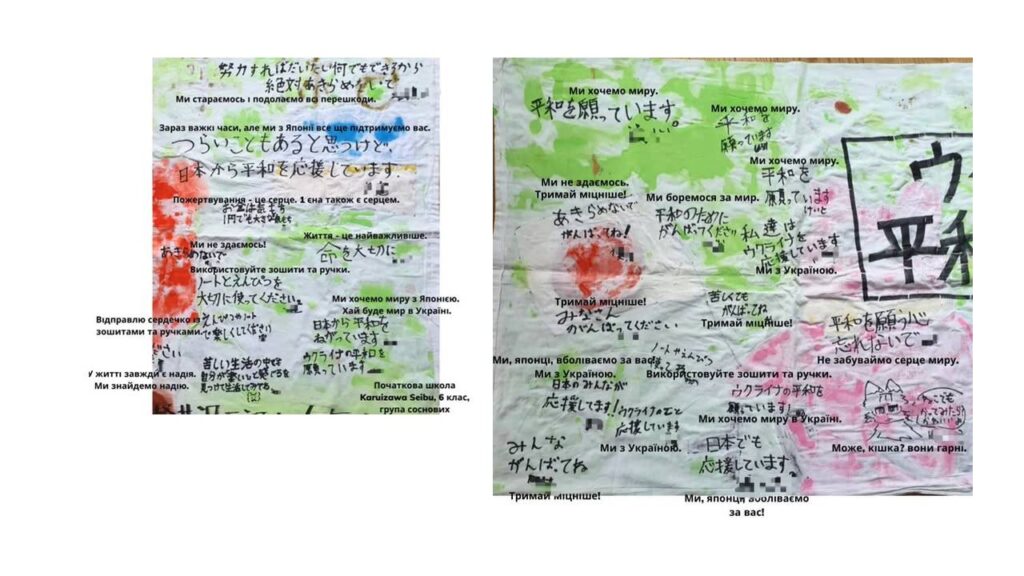 努力すればだいたい何でもできるから
絶対あきらめないで
Ми стараємось і подолаємо всі перешкоди.
Зараз важкі часи, але ми з Японії все ще підтримуємо вас.
つらいこともあると思うけど、
日本から平和を応援しています.
Пожертвування - це серце. 1 єна також є серцем.
1円でも大きな
Життя - це найважливіше.
命を大切に
Ми не здаємось!
あきらめないで
Використовуйте зошити та ручки.
ノートとえんぴつを
大切に使ってください。
Ми хочемо миру з Японією.
Хай буде мир в Україні.
Відправлю сердечко із
зошитами та ручками.
日本から平和を
ねがっています
ウクライナの平和を
願っています
苦しい生活の中でも
У житті завжди є надія.
Ми знайдемо надію.
Початкова школа
Karuizawa Seibu, 6 клас,
група соснових
Ми хочемо миру.
平和を願っています。
Ми хочемо миру.
平和を
願っています
Ми хочемо миру.
平和を
願っています
けいと
Ми не здаємось.
Тримай міцніше!
あきらめないで
がんばってね!
Ми боремося за мир.
平和のために
がんばってください
私達は
ウクライナを
応援しています
Ми з Україною.
ウ
平和
Тримай міцніше!
みなさん
がんばってください
苦しくても
がんばってね
Тримай міцніше!
平和を願う心
忘れないで
Не забуваймо серце миру.
Ми, японці, вболіваємо за вас!
Ми з Україною.
日本のみんなが
応援してます!
ウクライナのこと
応援しています
Ми з Україною.
ノートやえんぴつ
Використовуйте зошити та ручки.
ウクライナの平和を
願っています!
Ми хочемо миру в Україні.
日本でも
応援しています。
Ми, японці, вболіваємо
за вас!
みんな
がんばってね
Тримай міцніше!
Може, кішка? вони гарні.